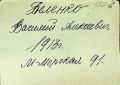 Беленко
Василий Алексеевич
1913г.
М-Морская 91.